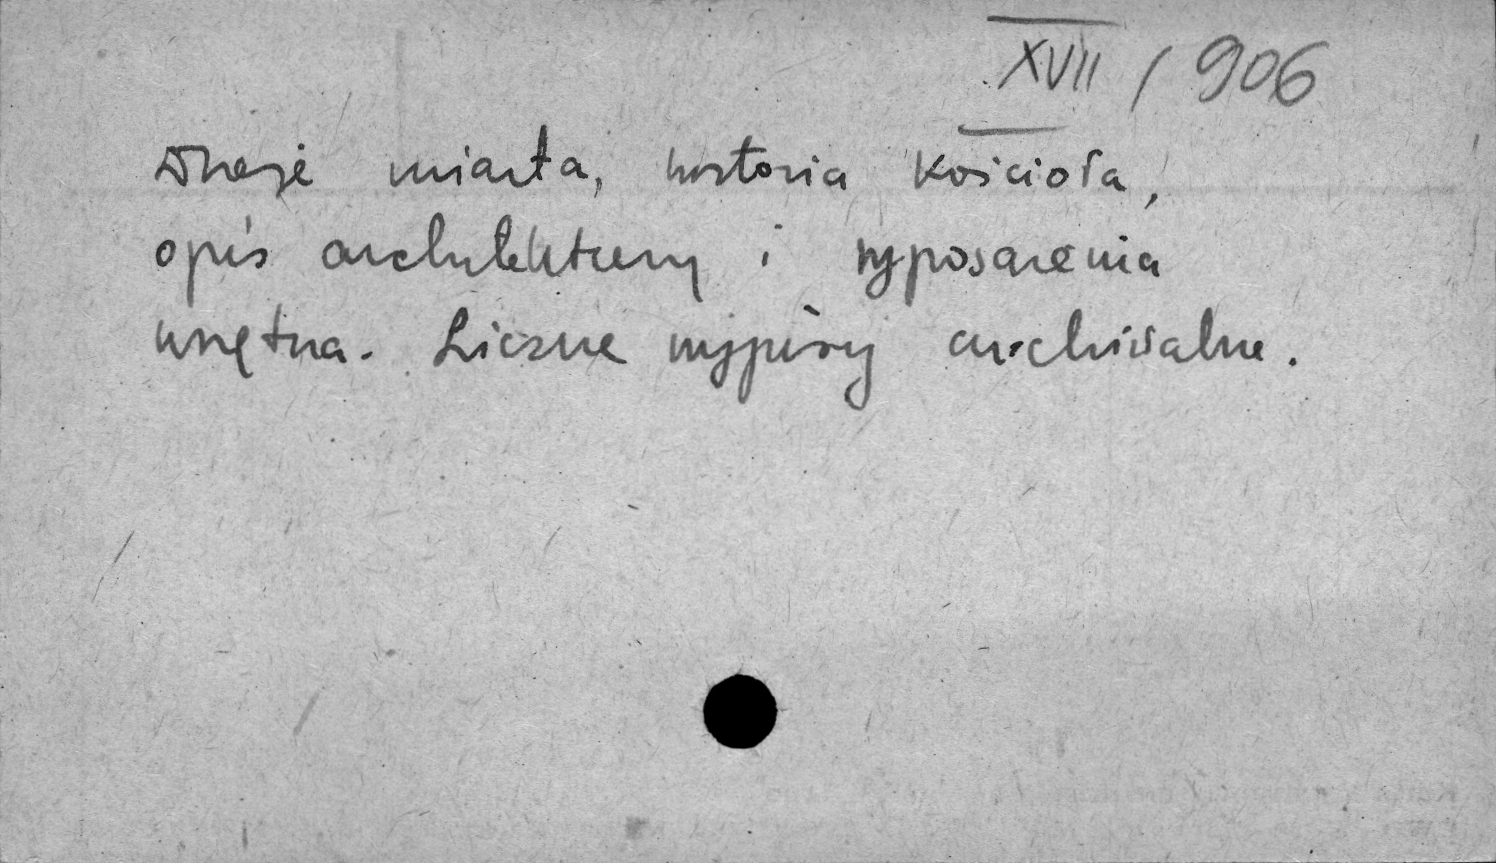 XVII / 906
Dzieje miasta, historia kościoła,
opis architektury i wyposażenia
wnętrza. Liczne wypisy archiwalne.